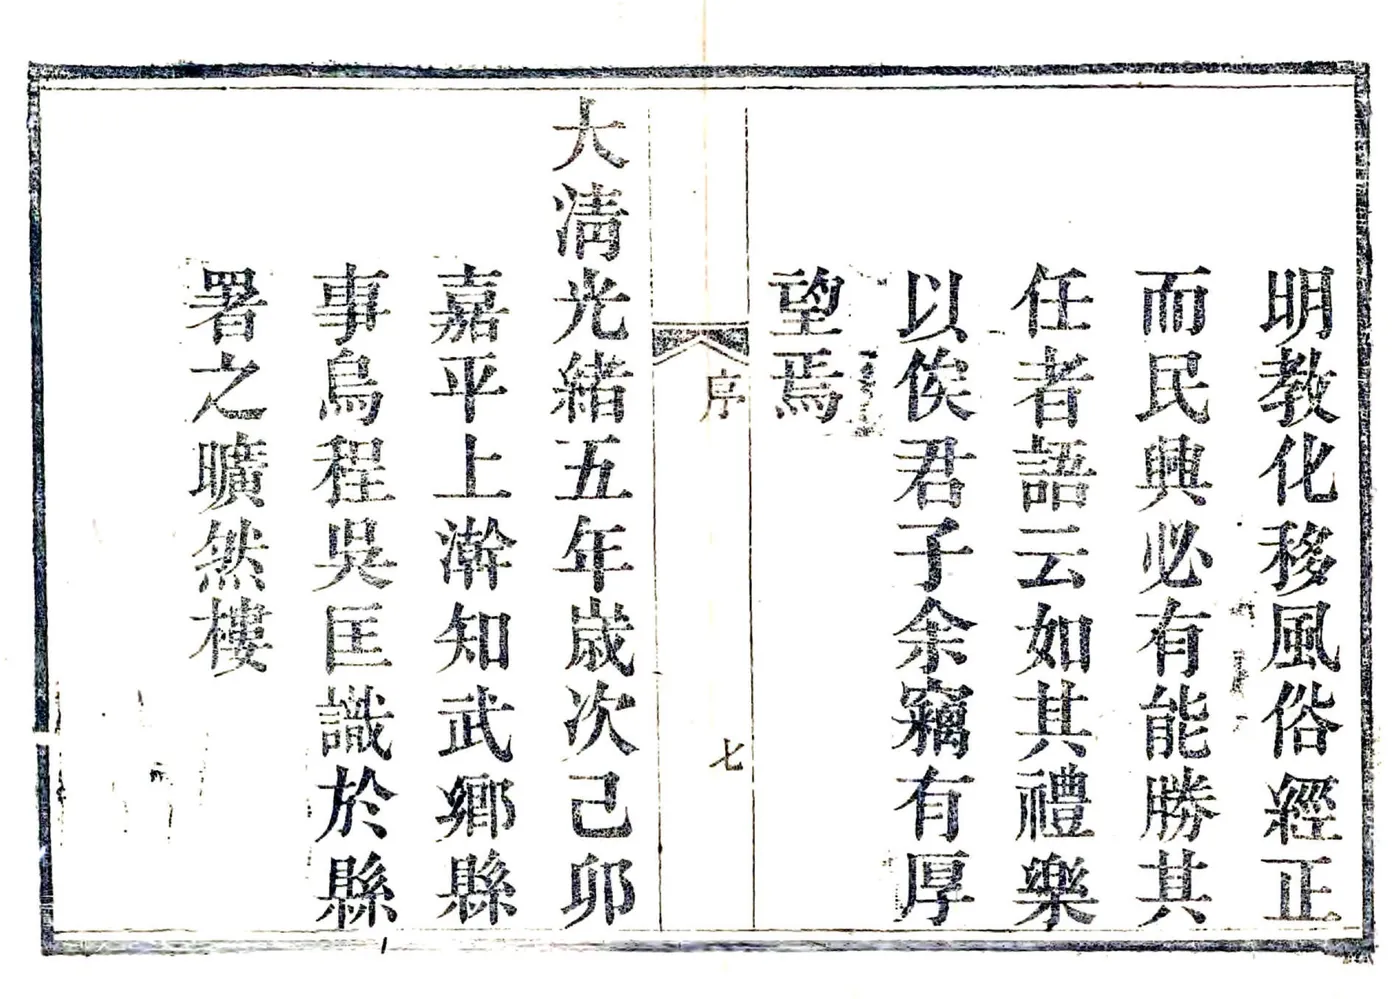 明教化移風俗經正
而民興必有能勝其
任者語云如其禮樂
以俟君子余竊有厚
望焉
序
七
大淸光緒五年歲次己卯
嘉平上澣知武鄉縣
事烏程吳匡識於縣
署之曠然樓